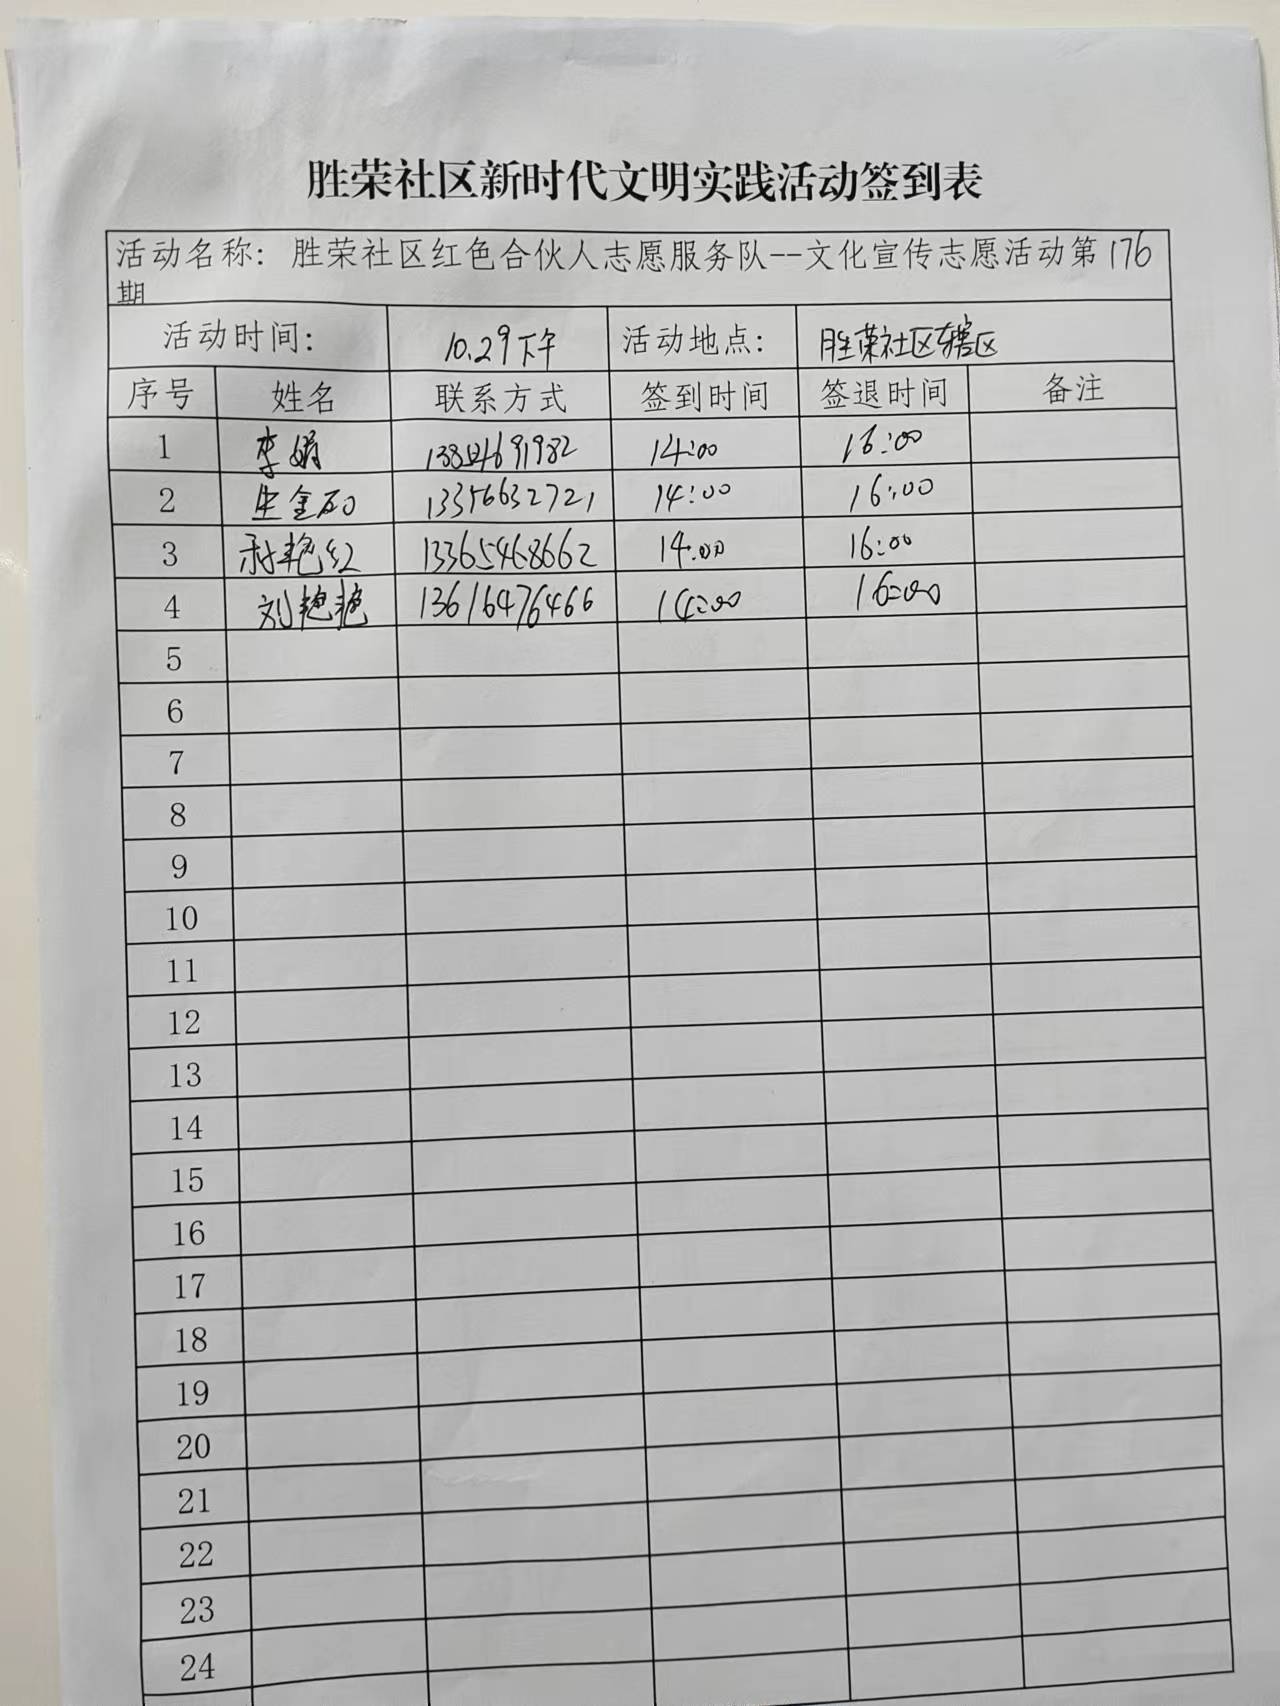 胜荣社区新时代文明实践活动签到表
活动名称: 胜荣社区红色合伙人志愿服务队--文化宣传志愿活动第176
期
活动时间: 10.29下午 活动地点: 胜荣社区辖区
序号 姓名 联系方式 签到时间 签退时间 备注
1 李娟 14:00 16:00
2 13356632721 14:00 16:00
3 艳红 13365468662 14:00 16:00
4 刘艳艳 13616476466 14:00 16:00
5
6
7
8
9
10
11
12
13
14
15
16
17
18
19
20
21
22
23
24